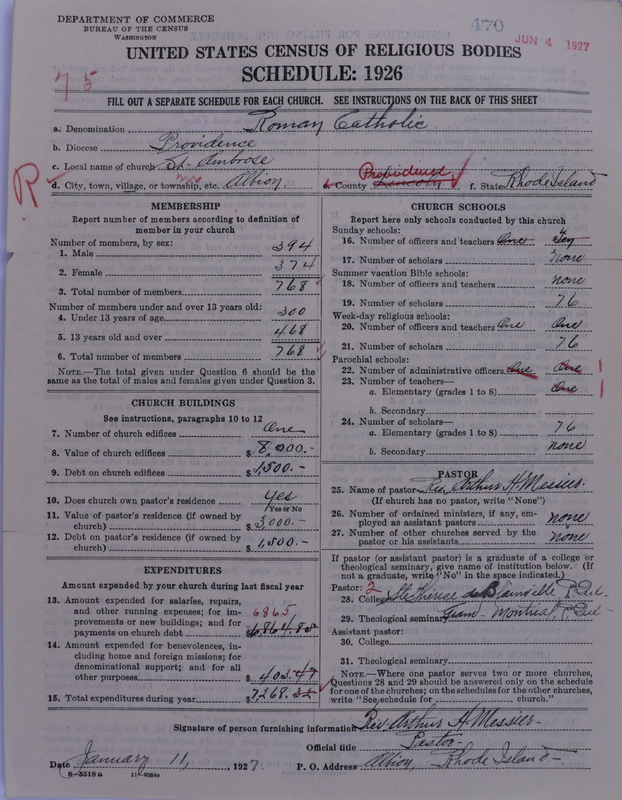 DEPARTMENT OF COMMERCE
BUREAU OF THE CENSUS
WASHINGTON
470
JUN 4 1927
UNITED STATES CENSUS OF RELIGIOUS BODIES
SCHEDULE: 1926
75
FILL OUT A SEPARATE SCHEDULE FOR EACH CHURCH. SEE INSTRUCTIONS ON THE BACK OF THIS SHEET
a. Denomination Roman Catholic
b. Diocese Providence
c. Local name of church St. Ambrose
R
d. City, town, village, or township, etc. Albion e. County Lincoln Providence f. State Rhode Island
MEMBERSHIP
Report number of members according to definition of
member in your church
Number of members, by sex:
1. Male 394
2. Female 374
3. Total number of members 768
Number of members under and over 13 years old:
4. Under 13 years of age 300
5. 13 years old and over 468
6. Total number of members 768
NOTE.—The total given under Question 6 should be
same as the total of males and females given under Question 3.
CHURCH BUILDINGS
See instructions, paragraphs 10 to 12
7. Number of church edifices One
8. Value of church edifices $ 8,000.-
9. Debt on church edifices $ 1,500.-
10. Does church own pastor's residence Yes
Yes or No
11. Value of pastor's residence (if owned by
church) $ 3,000.-
12. Debt on pastor's residence (if owned by
church) $ 1,500.-
EXPENDITURES
Amount expended by your church during last fiscal year
13. Amount expended for salaries, repairs,
and other running expenses; for im-
provements or new buildings; and for
payments on church debt $ 6,864.85
6865
14. Amount expended for benevolences,
including home and foreign missions; for
denominational support; and for all
other purposes $ 403.47
15. Total expenditures during year $ 7268.32
CHURCH SCHOOLS
Report here only schools conducted by this church
Sunday schools:
16. Number of officers and teachers One Ten
17. Number of scholars none
Summer vacation Bible schools:
18. Number of officers and teachers none
19. Number of scholars 76
Week-day religious schools:
20. Number of officers and teachers One One
21. Number of scholars 76
Parochial schools:
22. Number of administrative officers One One 1
23. Number of teachers—
a. Elementary (grades 1 to 8) One 1
b. Secondary
24. Number of scholars—
a. Elementary (grades 1 to 8) 76
b. Secondary none
PASTOR
25. Name of pastor Rev. Arthur H. Messier.
(If church has no pastor, write "None")
26. Number of ordained ministers, if any, em-
ployed as assistant pastors none
27. Number of other churches served by the
pastor or his assistants none
If pastor (or assistant pastor) is a graduate of a college or
theological seminary, give name of institution below. (If
not a graduate, write "No" in the space indicated.)
Pastor: 2
28. College Ste Thérèse de Blainville P. Que-
29. Theological seminary Gram- Montreal, P. Que-
Assistant pastor:
30. College
31. Theological seminary
NOTE.—Where one pastor serves two or more churches,
Questions 28 and 29 should be answered only on the schedule
for one of the churches; on the schedules for the other churches,
write "See schedule for church."
Signature of person furnishing information Rev. Arthur H. Messier-
Official title Pastor-
Date January 11, 1927. P. O. Address Albion, Rhode Island-
8—5518 a